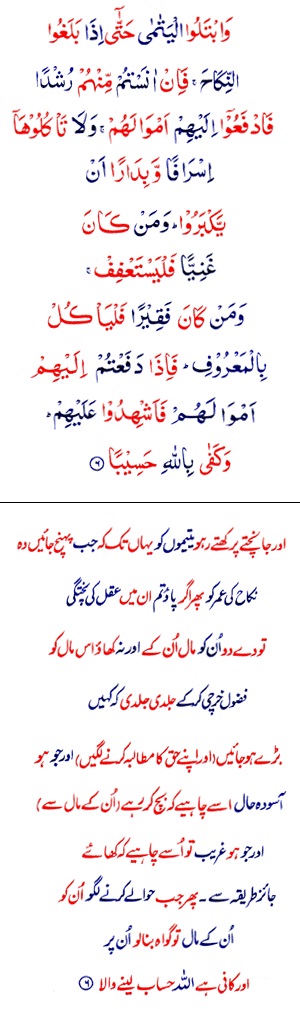 وَابْتَلُوا الْيَتٰمٰى حَتّٰٓى اِذَا بَلَغُوا
النِّكَاحَ ۚ فَاِنْ اٰنَسْتُمْ مِّنْهُمْ رُشْدًا
فَادْفَعُوْٓا اِلَيْهِمْ اَمْوَالَهُمْ ۚ وَلَا تَاْكُلُوْهَآ
اِسْرَافًا وَّبِدَارًا اَنْ
يَّكْبَرُوْا ؕ وَمَنْ كَانَ
غَنِيًّا فَلْيَسْتَعْفِفْ ۚ
وَمَنْ كَانَ فَقِيْرًا فَلْيَاْكُلْ
بِالْمَعْرُوْفِ ؕ فَاِذَا دَفَعْتُمْ اِلَيْهِمْ
اَمْوَالَهُمْ فَاَشْهِدُوْا عَلَيْهِمْ ؕ
وَكَفٰى بِاللّٰهِ حَسِيْبًا ۶
اور جانچتے پرکھتے رہو یتیموں کو یہاں تک کہ جب پہنچ جائیں وہ
نکاح کی عمر کو پھر اگر پاؤ تم ان میں عقل کی پختگی
تو دے دو اُن کو مال اُن کے اور نہ کھاؤ اس مال کو
فضول خرچی کر کے جلدی جلدی کہ کہیں
بڑے ہو جائیں (اور اپنے حق کا مطالبہ کرنے لگیں) اور جو ہو
آسودہ حال اسے چاہیے کہ بچ کر رہے (اُن کے مال سے)
اور جو ہو غریب تو اُسے چاہیے کہ کھائے
جائز طریقہ سے ۔ پھر جب حوالے کرنے لگو اُن کو
اُن کے مال تو گواہ بنا لو اُن پر
اور کافی ہے اللہ حساب لینے والا ۶